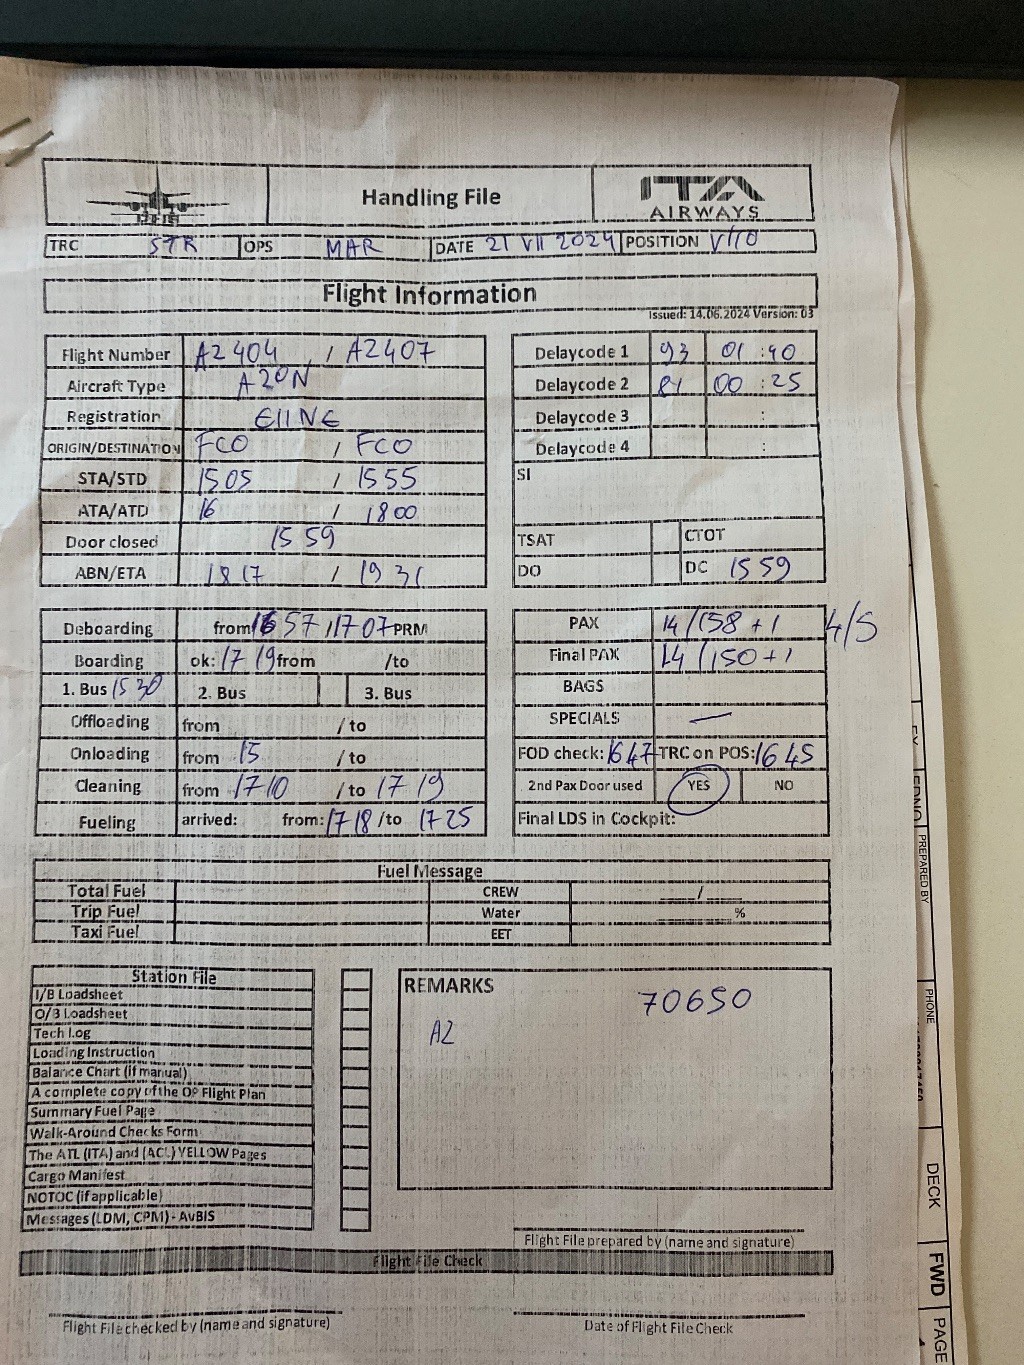 Handling File
ITA
AIRWAYS
TRC STR OPS MAR DATE 21 VII 2024 POSITION V110
Flight Information
Issued: 14.06.2024 Version: 03
Flight Number AZ 404 / AZ407
Aircraft Type A20N
Registration EIINE
ORIGIN/DESTINATION FCO / FCO
STA/STD 1505 / 1555
ATA/ATD 16 / 1800
Door closed 1559
ABN/ETA 1817 / 1931
Delaycode 1 93 01 :40
Delaycode 2 81 00 :25
Delaycode 3 :
Delaycode 4 :
SI
TSAT CTOT
DO DC 1559
Deboarding from 1657 / 1707 PRM
Boarding ok: 1719 from /to
1. Bus 1530 2. Bus 3. Bus
Offloading from / to
Onloading from 15 / to
Cleaning from 1710 / to 1719
Fueling arrived: from: 1718 /to 1725
PAX 14/158 + 1 4/5
Final PAX 14/150+1
BAGS
SPECIALS —
FOD check: 1647 TRC on POS: 1645
2nd Pax Door used YES NO
Final LDS in Cockpit:
Fuel Message
Total Fuel CREW /
Trip Fuel Water %
Taxi Fuel EET
Station File
I/B Loadsheet
O/B Loadsheet
Tech Log
Loading Instruction
Balance Chart (if manual)
A complete copy of the OP Flight Plan
Summary Fuel Page
Walk-Around Checks Form
The ATL (ITA) and (ACL) YELLOW Pages
Cargo Manifest
NOTOC (if applicable)
Messages (LDM, CPM) - AvBIS
REMARKS 70650
AZ
Flight File prepared by (name and signature)
Flight File Check
Flight File checked by (name and signature)
Date of Flight File Check
PREPARED BY
PHONE
DECK
FWD
PAGE